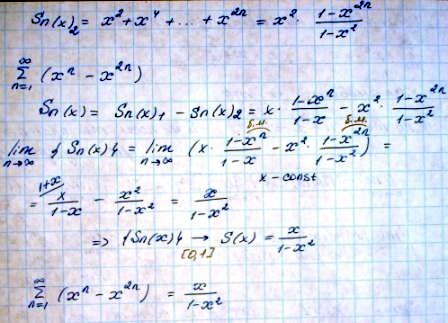 Sn(x)₂ = x² + x⁴ + ... + x²ⁿ = x² · (1-x²ⁿ)/(1-x²)
∑ₙ₌₁^∞ (xⁿ - x²ⁿ)
Sn(x) = Sn(x)₁ - Sn(x)₂ = x · (1-xⁿ)/(1-x) - x² · (1-x²ⁿ)/(1-x²)
lim n→∞ {Sn(x)} = lim n→∞ (x · (1-xⁿ)/(1-x) - x² · (1-x²ⁿ)/(1-x²)) =
б.м. б.м.
x - const
1+x
= x/(1-x) - x²/(1-x²) = x/(1-x²)
=> {Sn(x)} → [0,1] S(x) = x/(1-x²)
∑ₙ₌₁^∞ (xⁿ - x²ⁿ) = x/(1-x²)